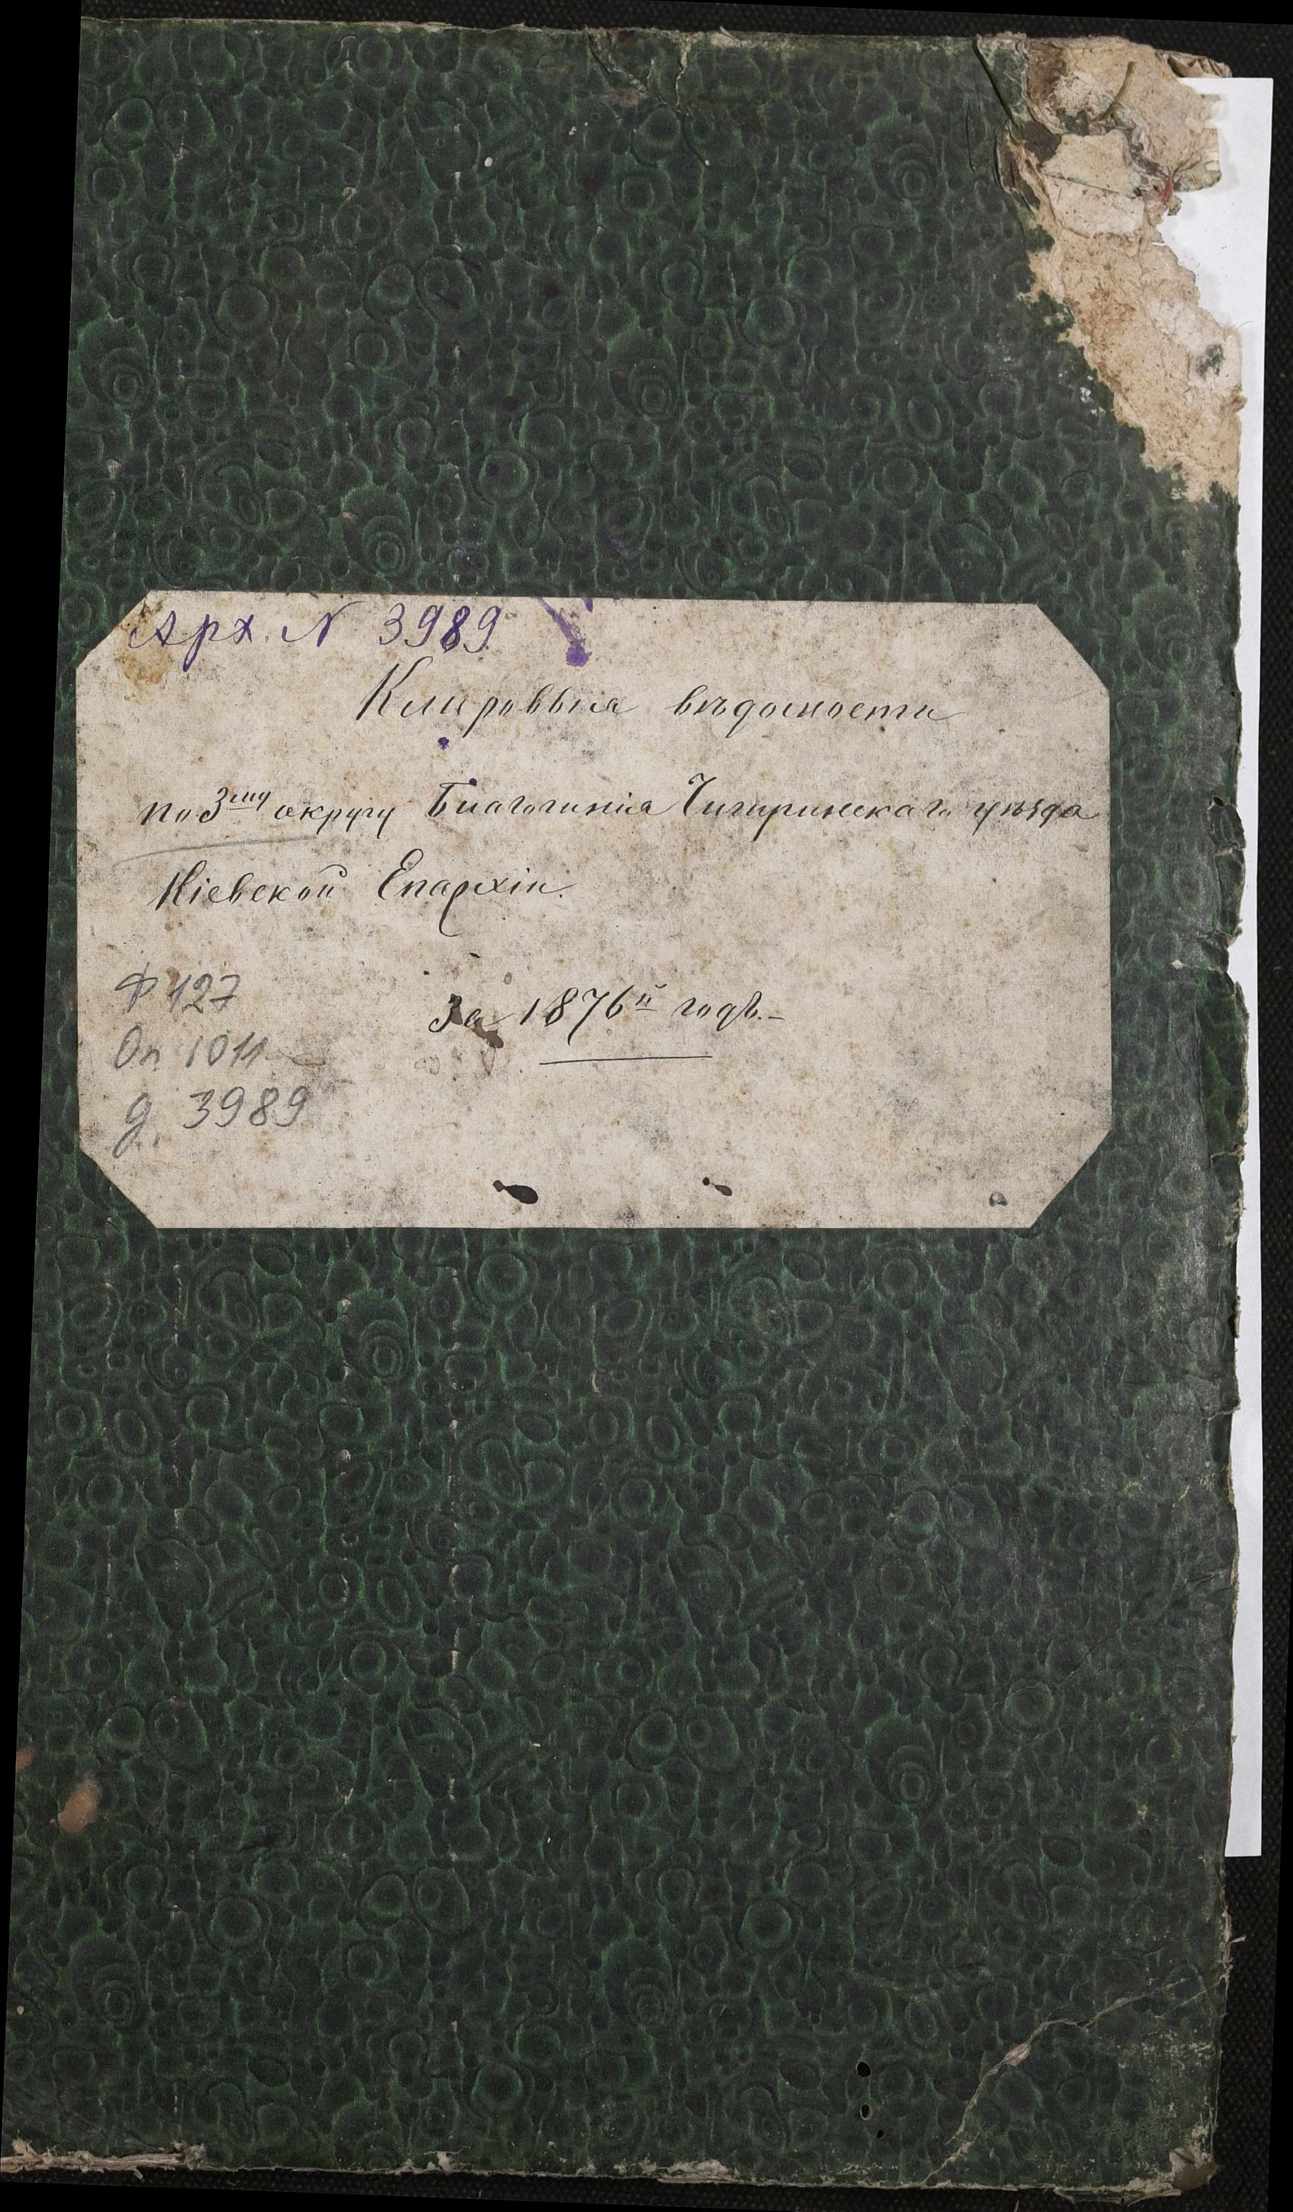 Арх. № 3989.
Клировыя вѣдомости
по 3му округу Благочинія Чигиринскаго уѣзда
Кіевской Епархіи.
За 1876й годъ.-
Ф 127
Оп 1011
д. 3989